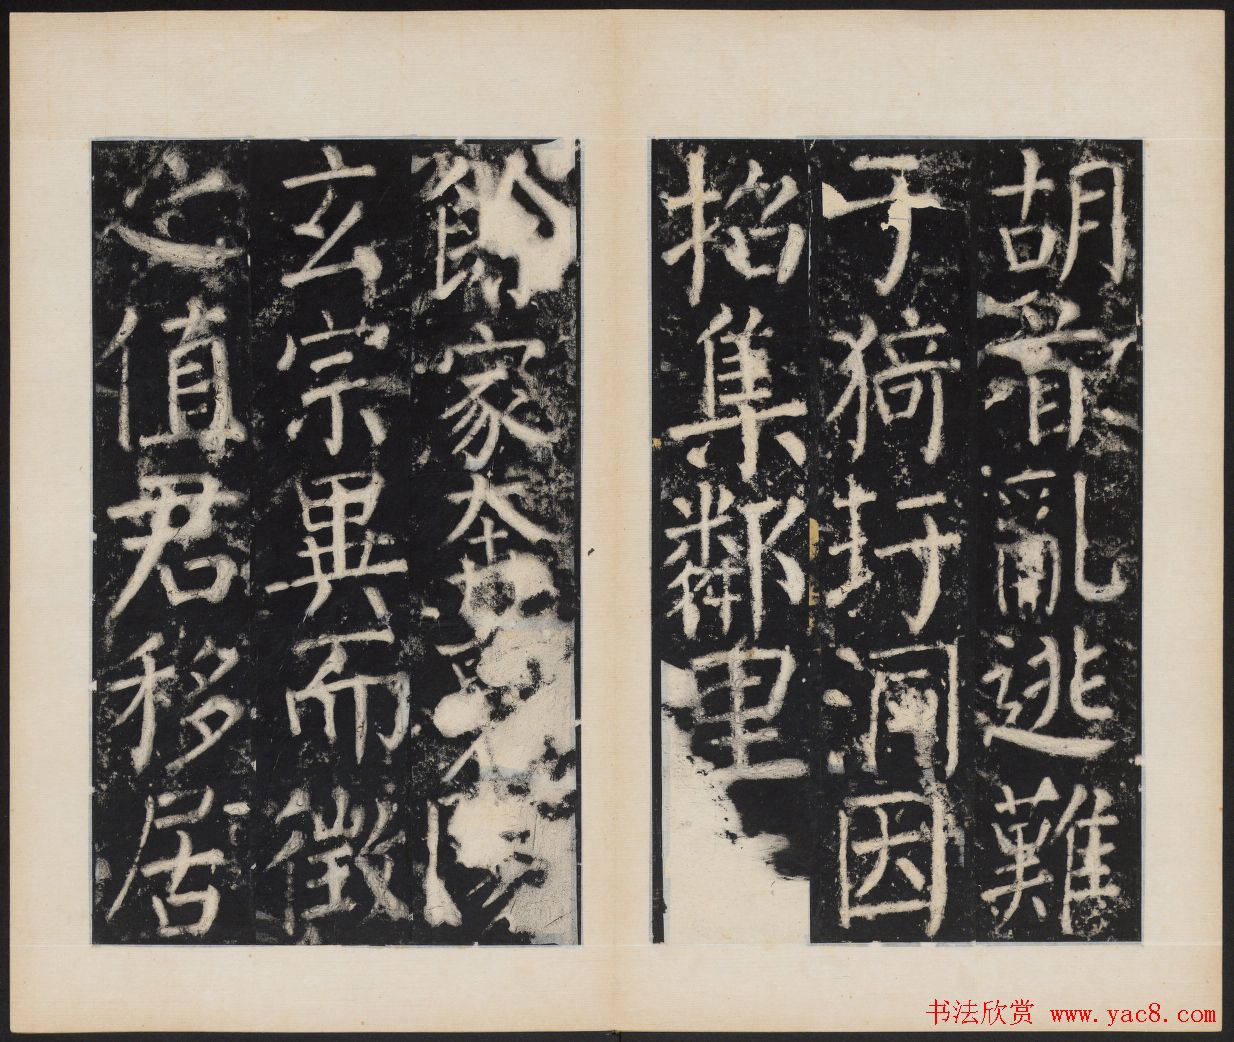 胡首亂逃難
于猗玗洞因
招集鄰里
餘家奔
玄宗異而徵
之值君移居
书法欣赏 www.yac8.com